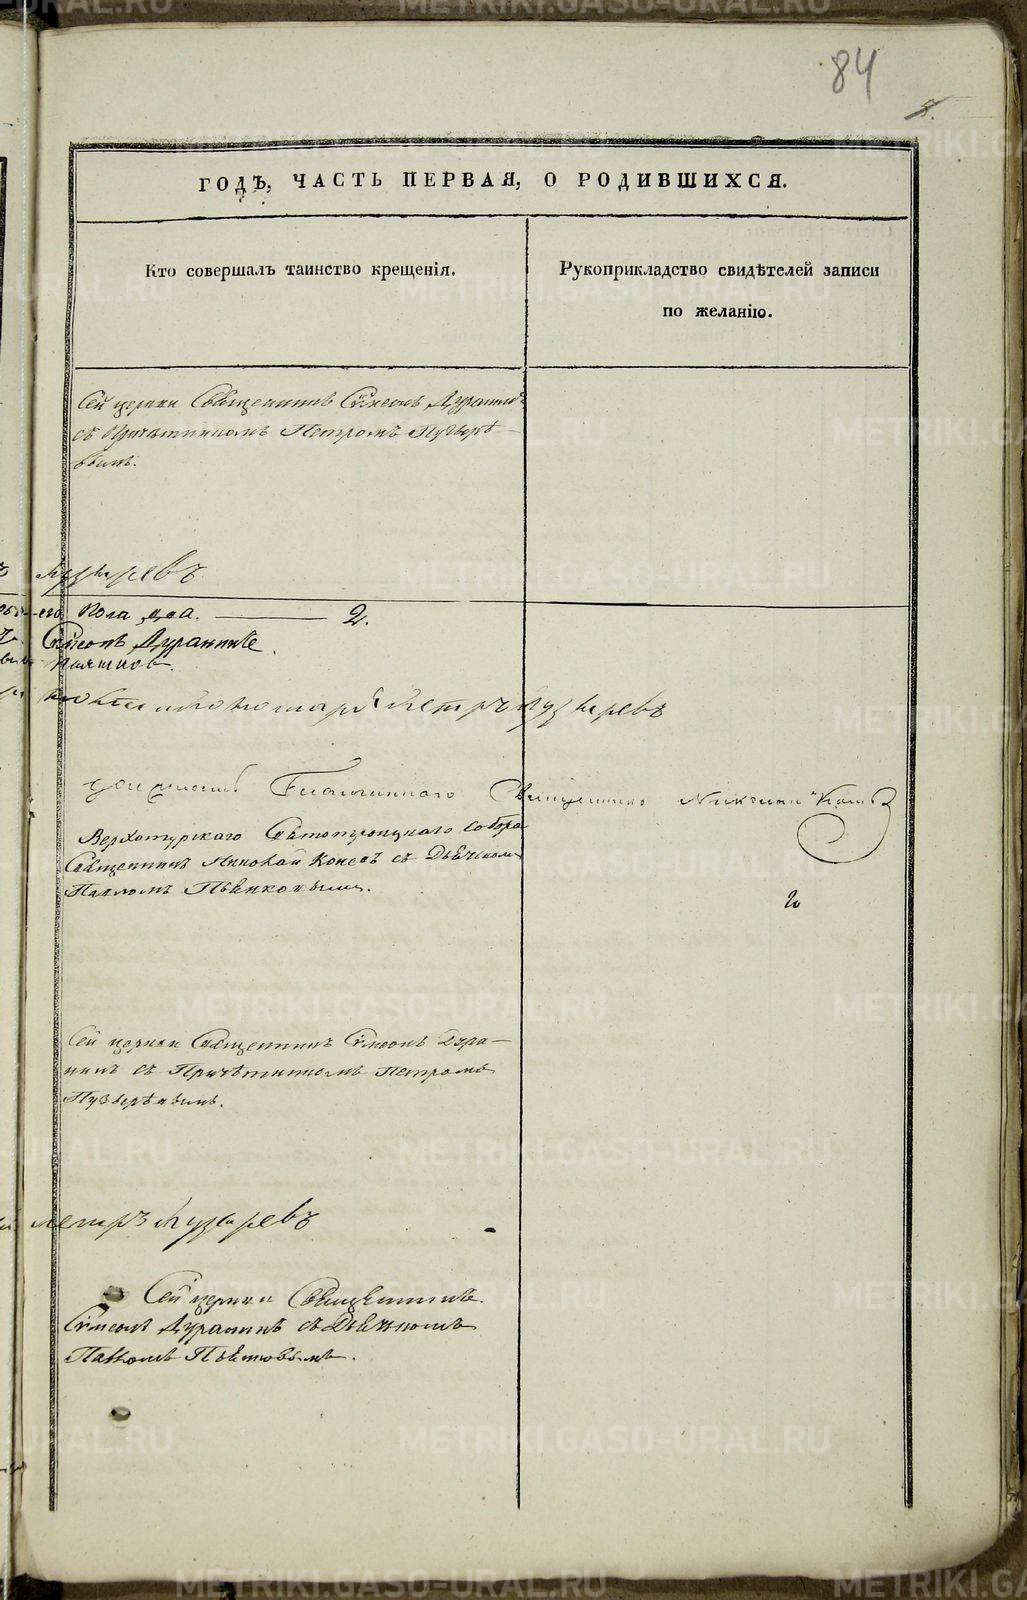 84
5.
ГОДЪ, ЧАСТЬ ПЕРВАЯ, О РОДИВШИХСЯ.
Кто совершалъ таинство крещенія.
Рукоприкладство свидѣтелей записи
по желанію.
Сей церкви Священникъ Сѵмеонъ
съ Причетникомъ Петромъ Пузырѣ-
вымъ.
Пузыревъ
его пола два. — 2.
Сѵмеонъ Дуранинъ
Петръ Пузыревъ
Благочинного Священникъ
Верхотурскаго Святотроицкаго Собора
Священникъ Николай съ Дьячкомъ
Павломъ Пьянковымъ.
Сей церкви Священникъ Сѵмеонъ Дура-
нинъ съ Причетникомъ Петромъ
Пузырѣвымъ.
Петръ Пузыревъ
Сей церкви Священникъ
Сѵмеонъ Дуранинъ съ Дьячкомъ
Павломъ Пьянковымъ.
METRIKI.GASO-URAL.RU